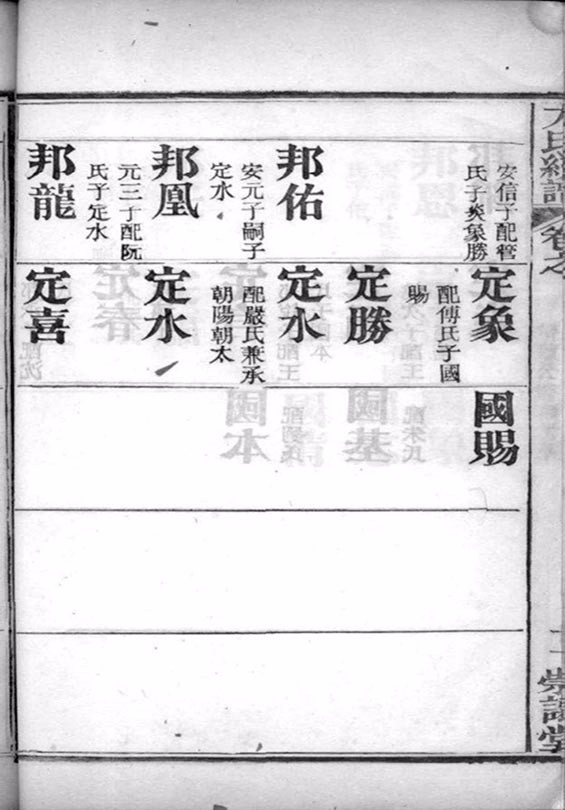 卷之
安信子配管
氏子炎象勝
邦佑
安元子嗣子
定水
邦凰
元三子配阮
氏子定水
邦龍
定象
配傅氏子國
賜
定勝
定水
配嚴氏兼承
朝陽朝太
定水
定喜
國賜